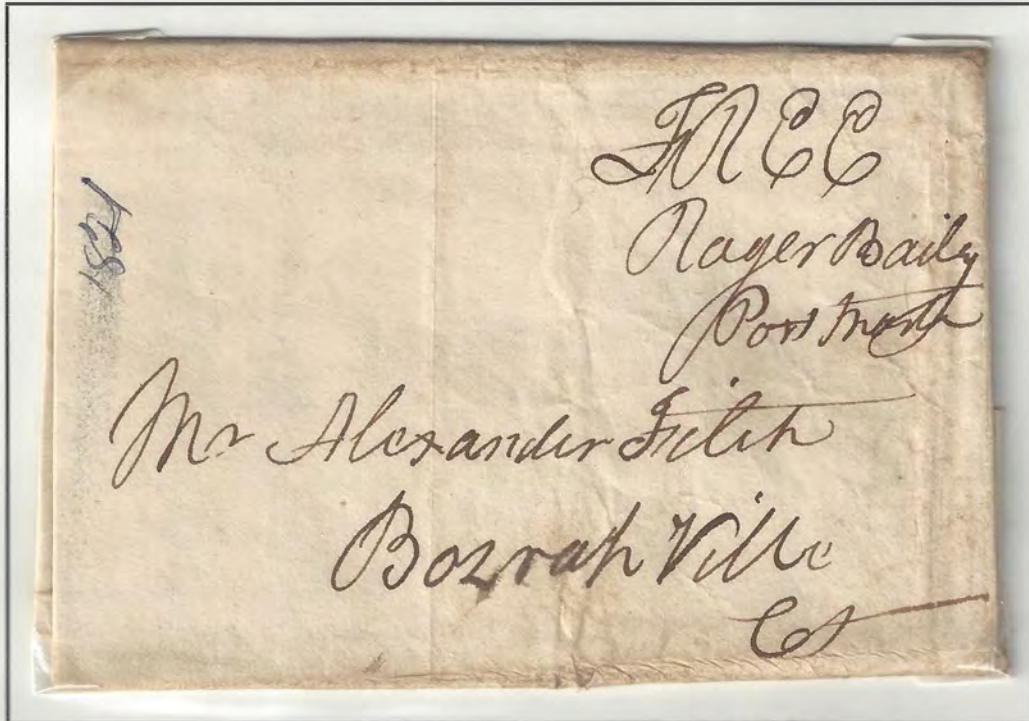 FREE
Roger Baily
Post Mastr
Mr Alexander Fitch
Bozrah Ville
Ct